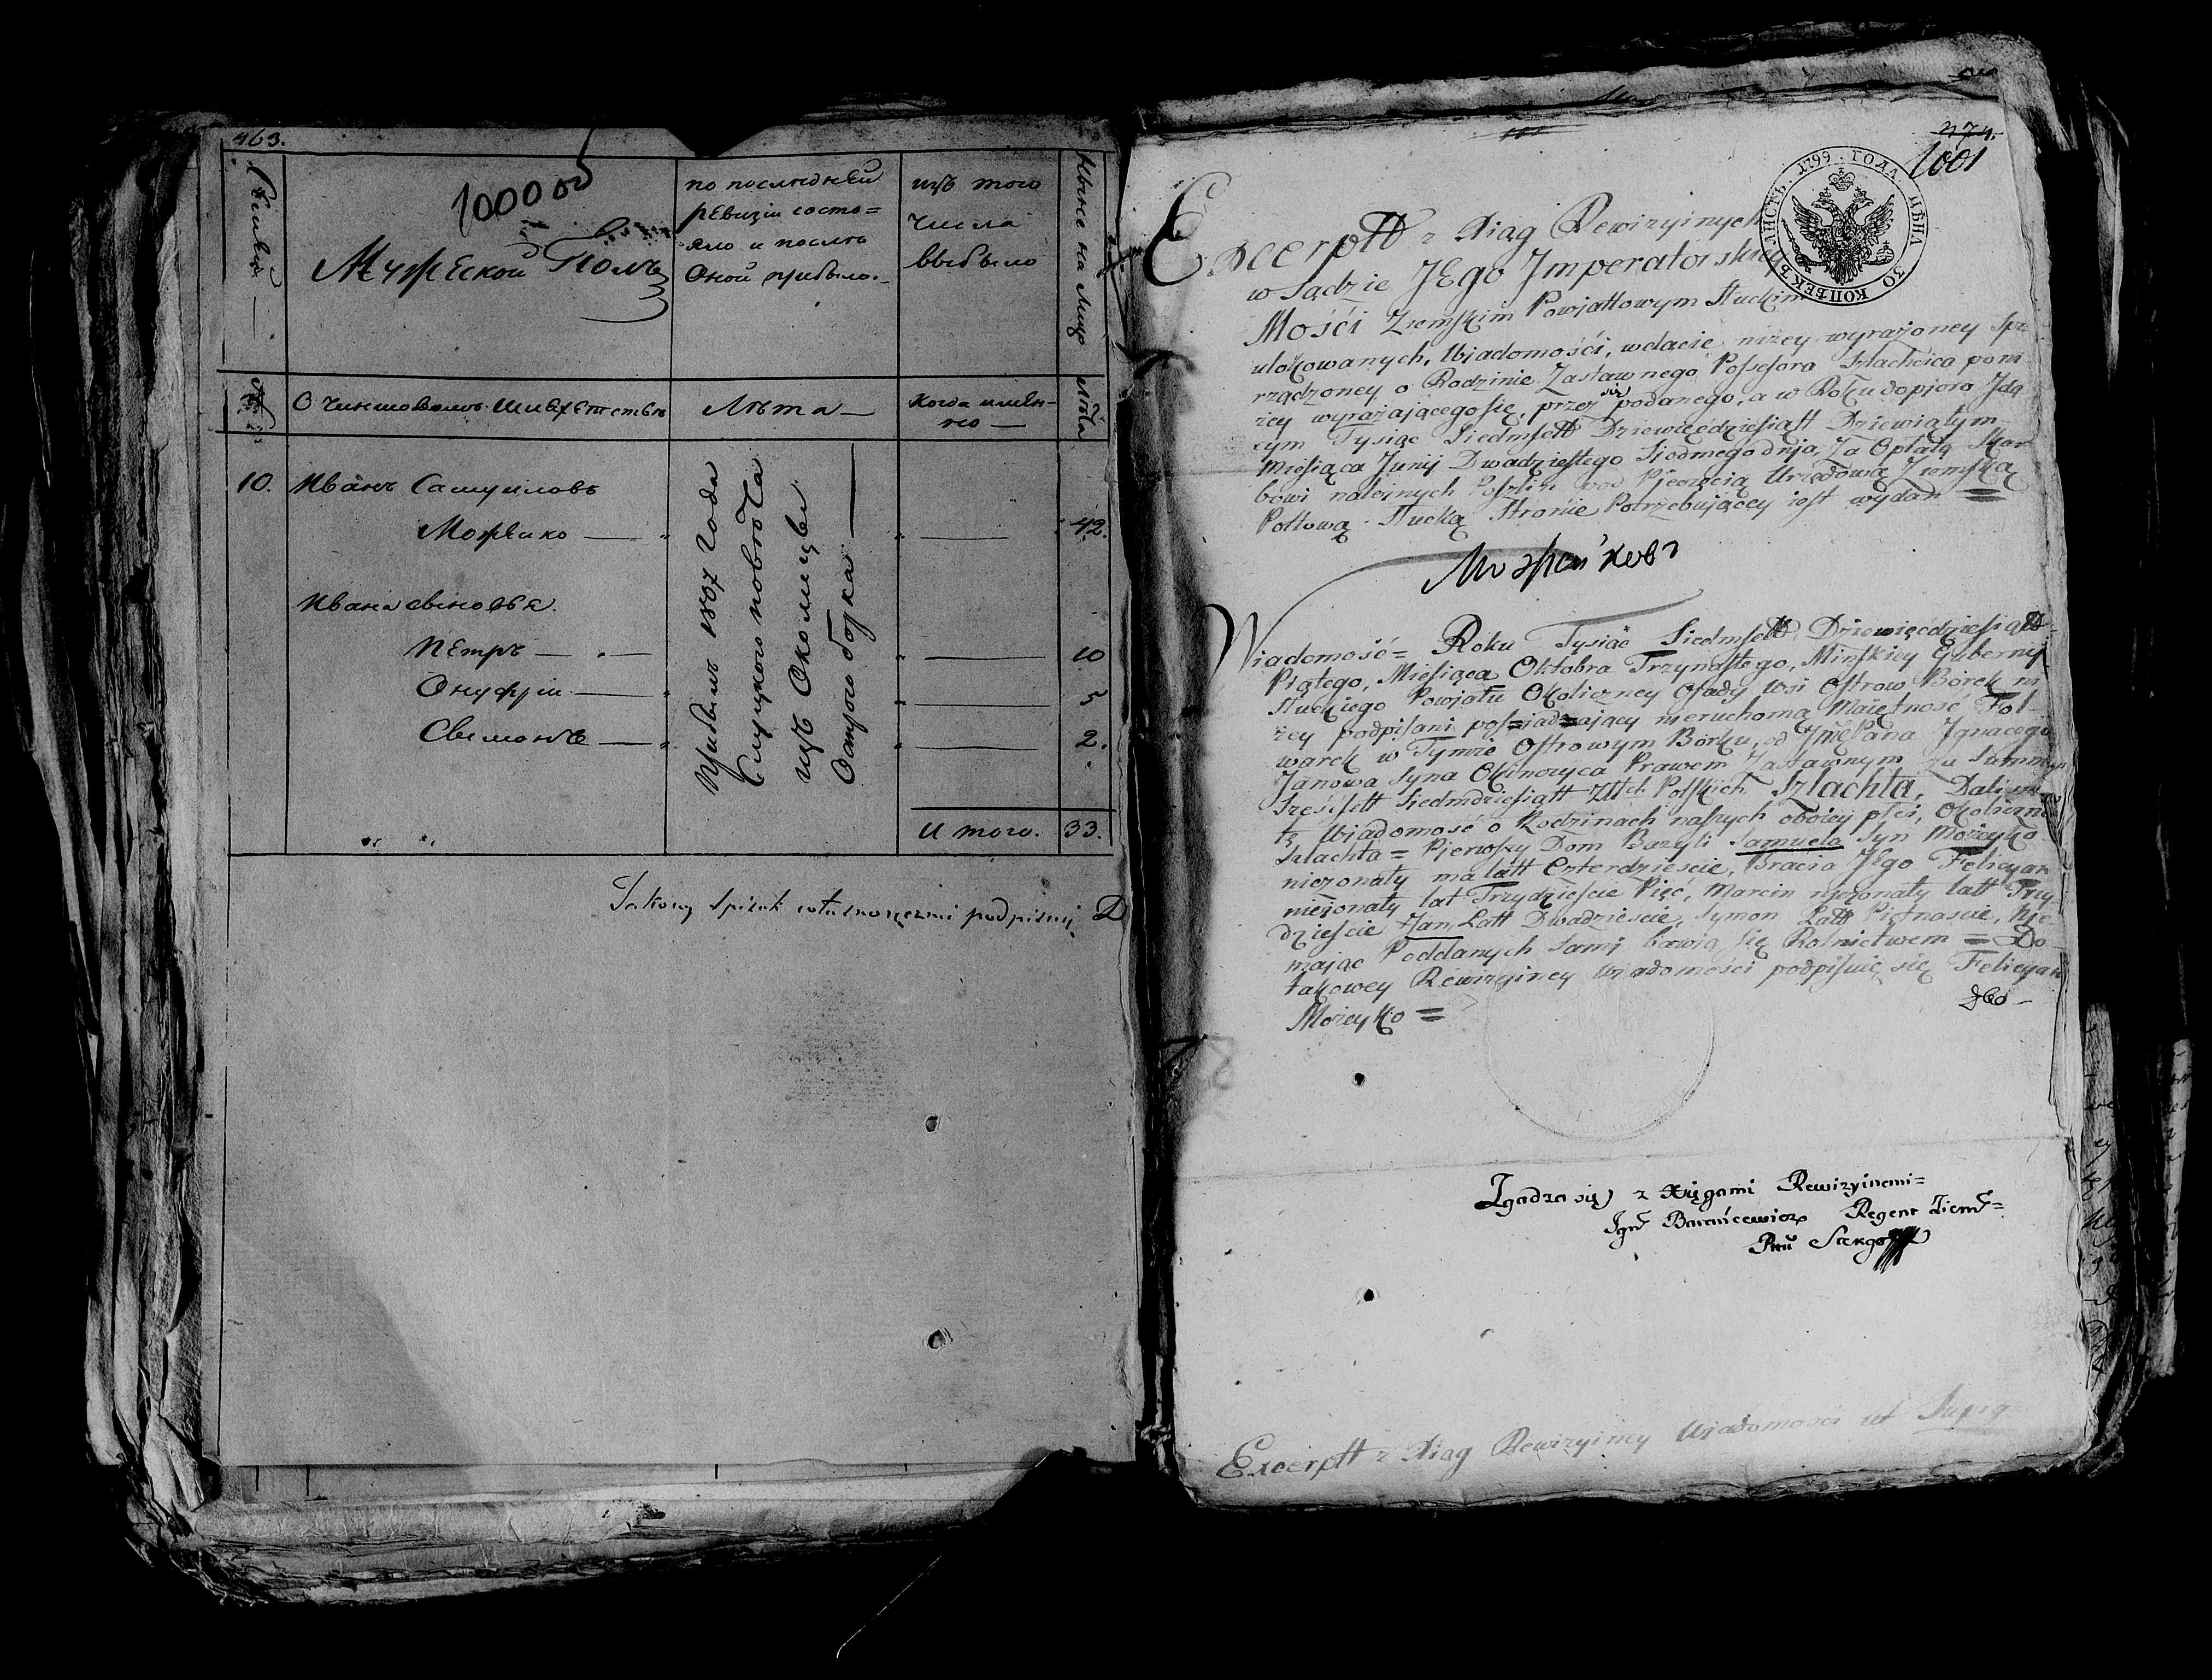 463.
1000 об
Мужеской Полъ
по последней
ревизіи состо=
яло и послѣ
Оной прибыло.
изъ того
числа
выбыло
Ныне на лицо
О чиншовомъ шляхетстве
Лѣта
когда имян-
но
Лѣта
10. Иванъ Самуиловъ
Можейко 42.
Ивана сыновья.
Петръ 10
Онуфрій 5
Сымонъ 2.
Прибылъ 1807 Года
Слуцкого повѣта
изъ Околицы
Острого борка
Итого. 33.
Takowy spisek własnoręcznie podpisuję
274.
1001
1799 ГОДА ЦѢНА 30 КОПѢЕКЪ ЛИСТЪ
Excerptt z Xiąg Rewizyinych
w Sądzie JEgo Jmperatorskiey
Mośći Ziemskim Powjattowym Słuckim
ulokowanych, Wiadomośći, w dacie niżey wyrażoney Spo
rządzoney o Rodzinie Zastawnego Possessora Szlachcica poni
żey wyrażającego się, przez niż podanego, a w Roku dopjoro Jdą
cym Tysiąc Siedmsett Dziewięcdziesiątt Dziewiątym
Miesiąca Junij Dwadziestego Siodmego dnja, Za Opłatą Skar
bowi należnych Poszlin pod Pjeczęcią Urzędową Ziemską
Pottową Słucką Stronie Potrzebującey iest wydan =
Можейковъ
Wiadomość = Roku Tysiąc Siedmsett Dziewięcdziesiątt
Piątego, Miesiąca Oktobra Trzynastego, Minskiey Guberny
Słuckiego Powjatu Okoliczney Osady Wsi Ostrow Borek ni
żey podpisani possiadzający nieruchomą Maiętność Fol-
wark w Tymże Ostrowym Borku, od JmćPana Jgnacego
Janowa Syna Okinczyca Prawem Zastawnym za Summę
Sześćsett Siedmdziesiątt Złtch Polskich Szlachta, Dalismy
tę Wiadomość o Rodzinach naszych oboiey płci, Okoliczna
Szlachta = Pjerwszy Dom Bazyli Samuela Syn Możeyko
nieżonaty ma latt Czterdzieście, Bracia JEgo Felicyan
nieżonaty lat Trzydzieście Pięć, Marcin njeżonaty latt Trzy
dzieście Jan Latt Dwadzieście, Symon Latt Piętnascie, Nie
mając Poddanych Sami bawią się Rolnictwem = Do
takowey Rewizyiney Wiadomości podpisuię się Felicyan
Możeyko =
Zgadza się z Xięgami Rewizyinemi=
Jgn Barańcewicz Regent Ziems=
Pttu Słuckgo
Excerptt z Xiąg Rewizyiney Wiadomości ut Supra